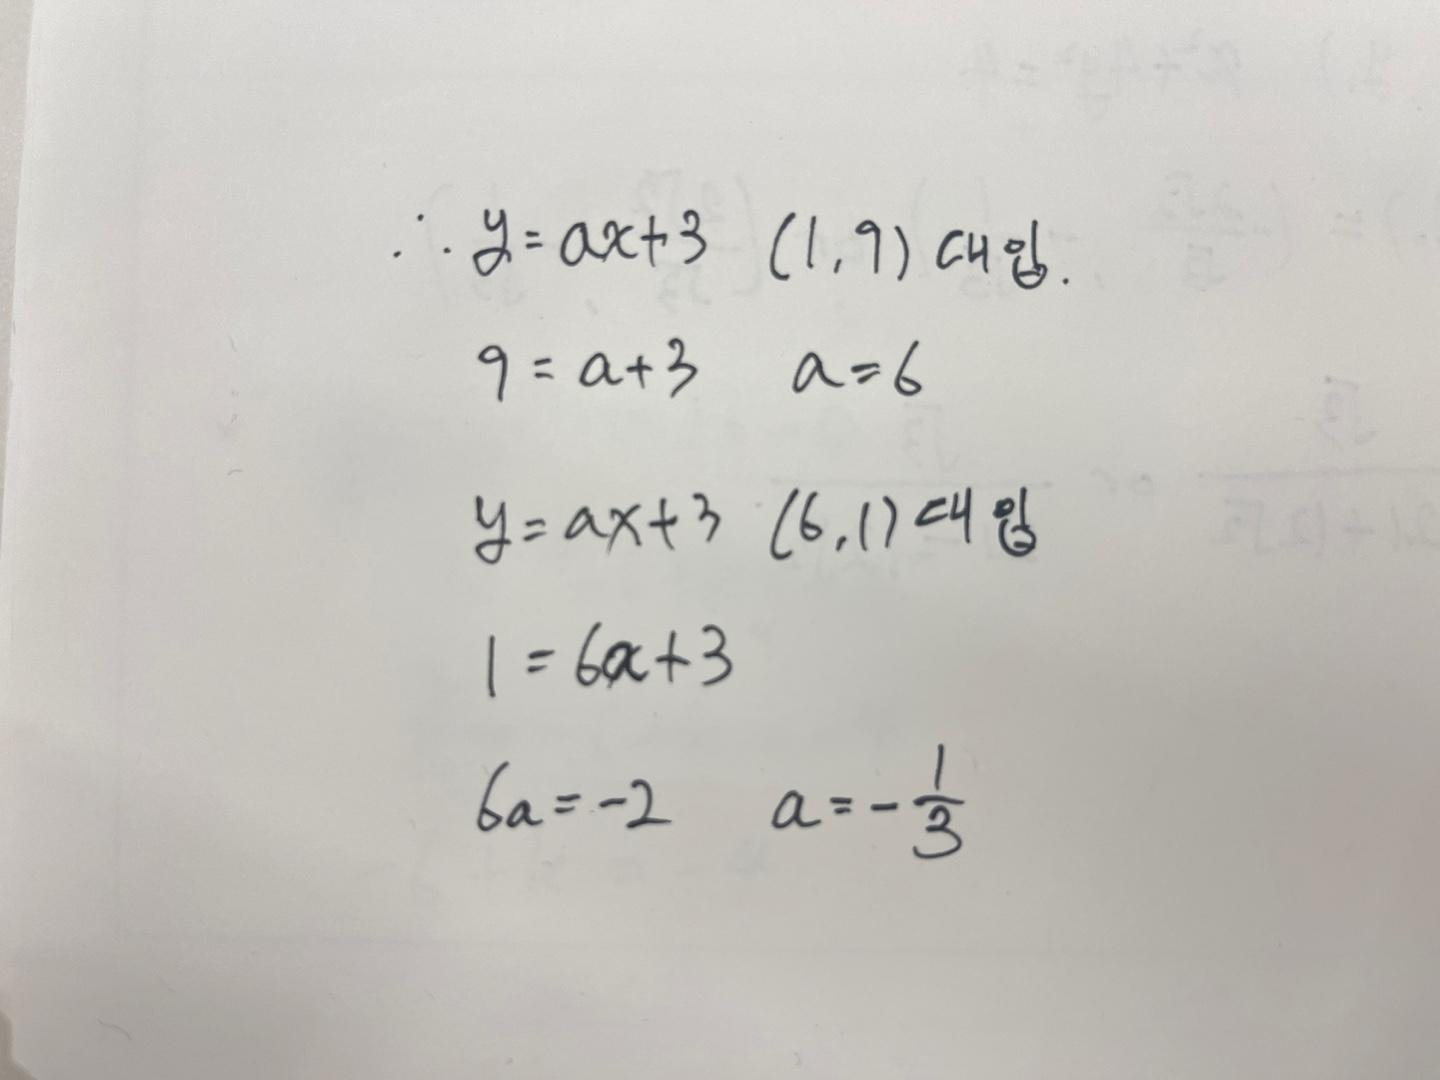 ∴ y = ax+3 (1,9) 대입.
9 = a+3 a=6
y = ax+3 (6,1) 대입
1 = 6a+3
6a = -2 a = -1/3